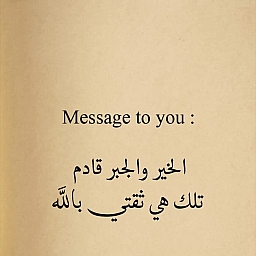 Message to you :
الخير والجبر قادم
تلك هي ثقتي بالله